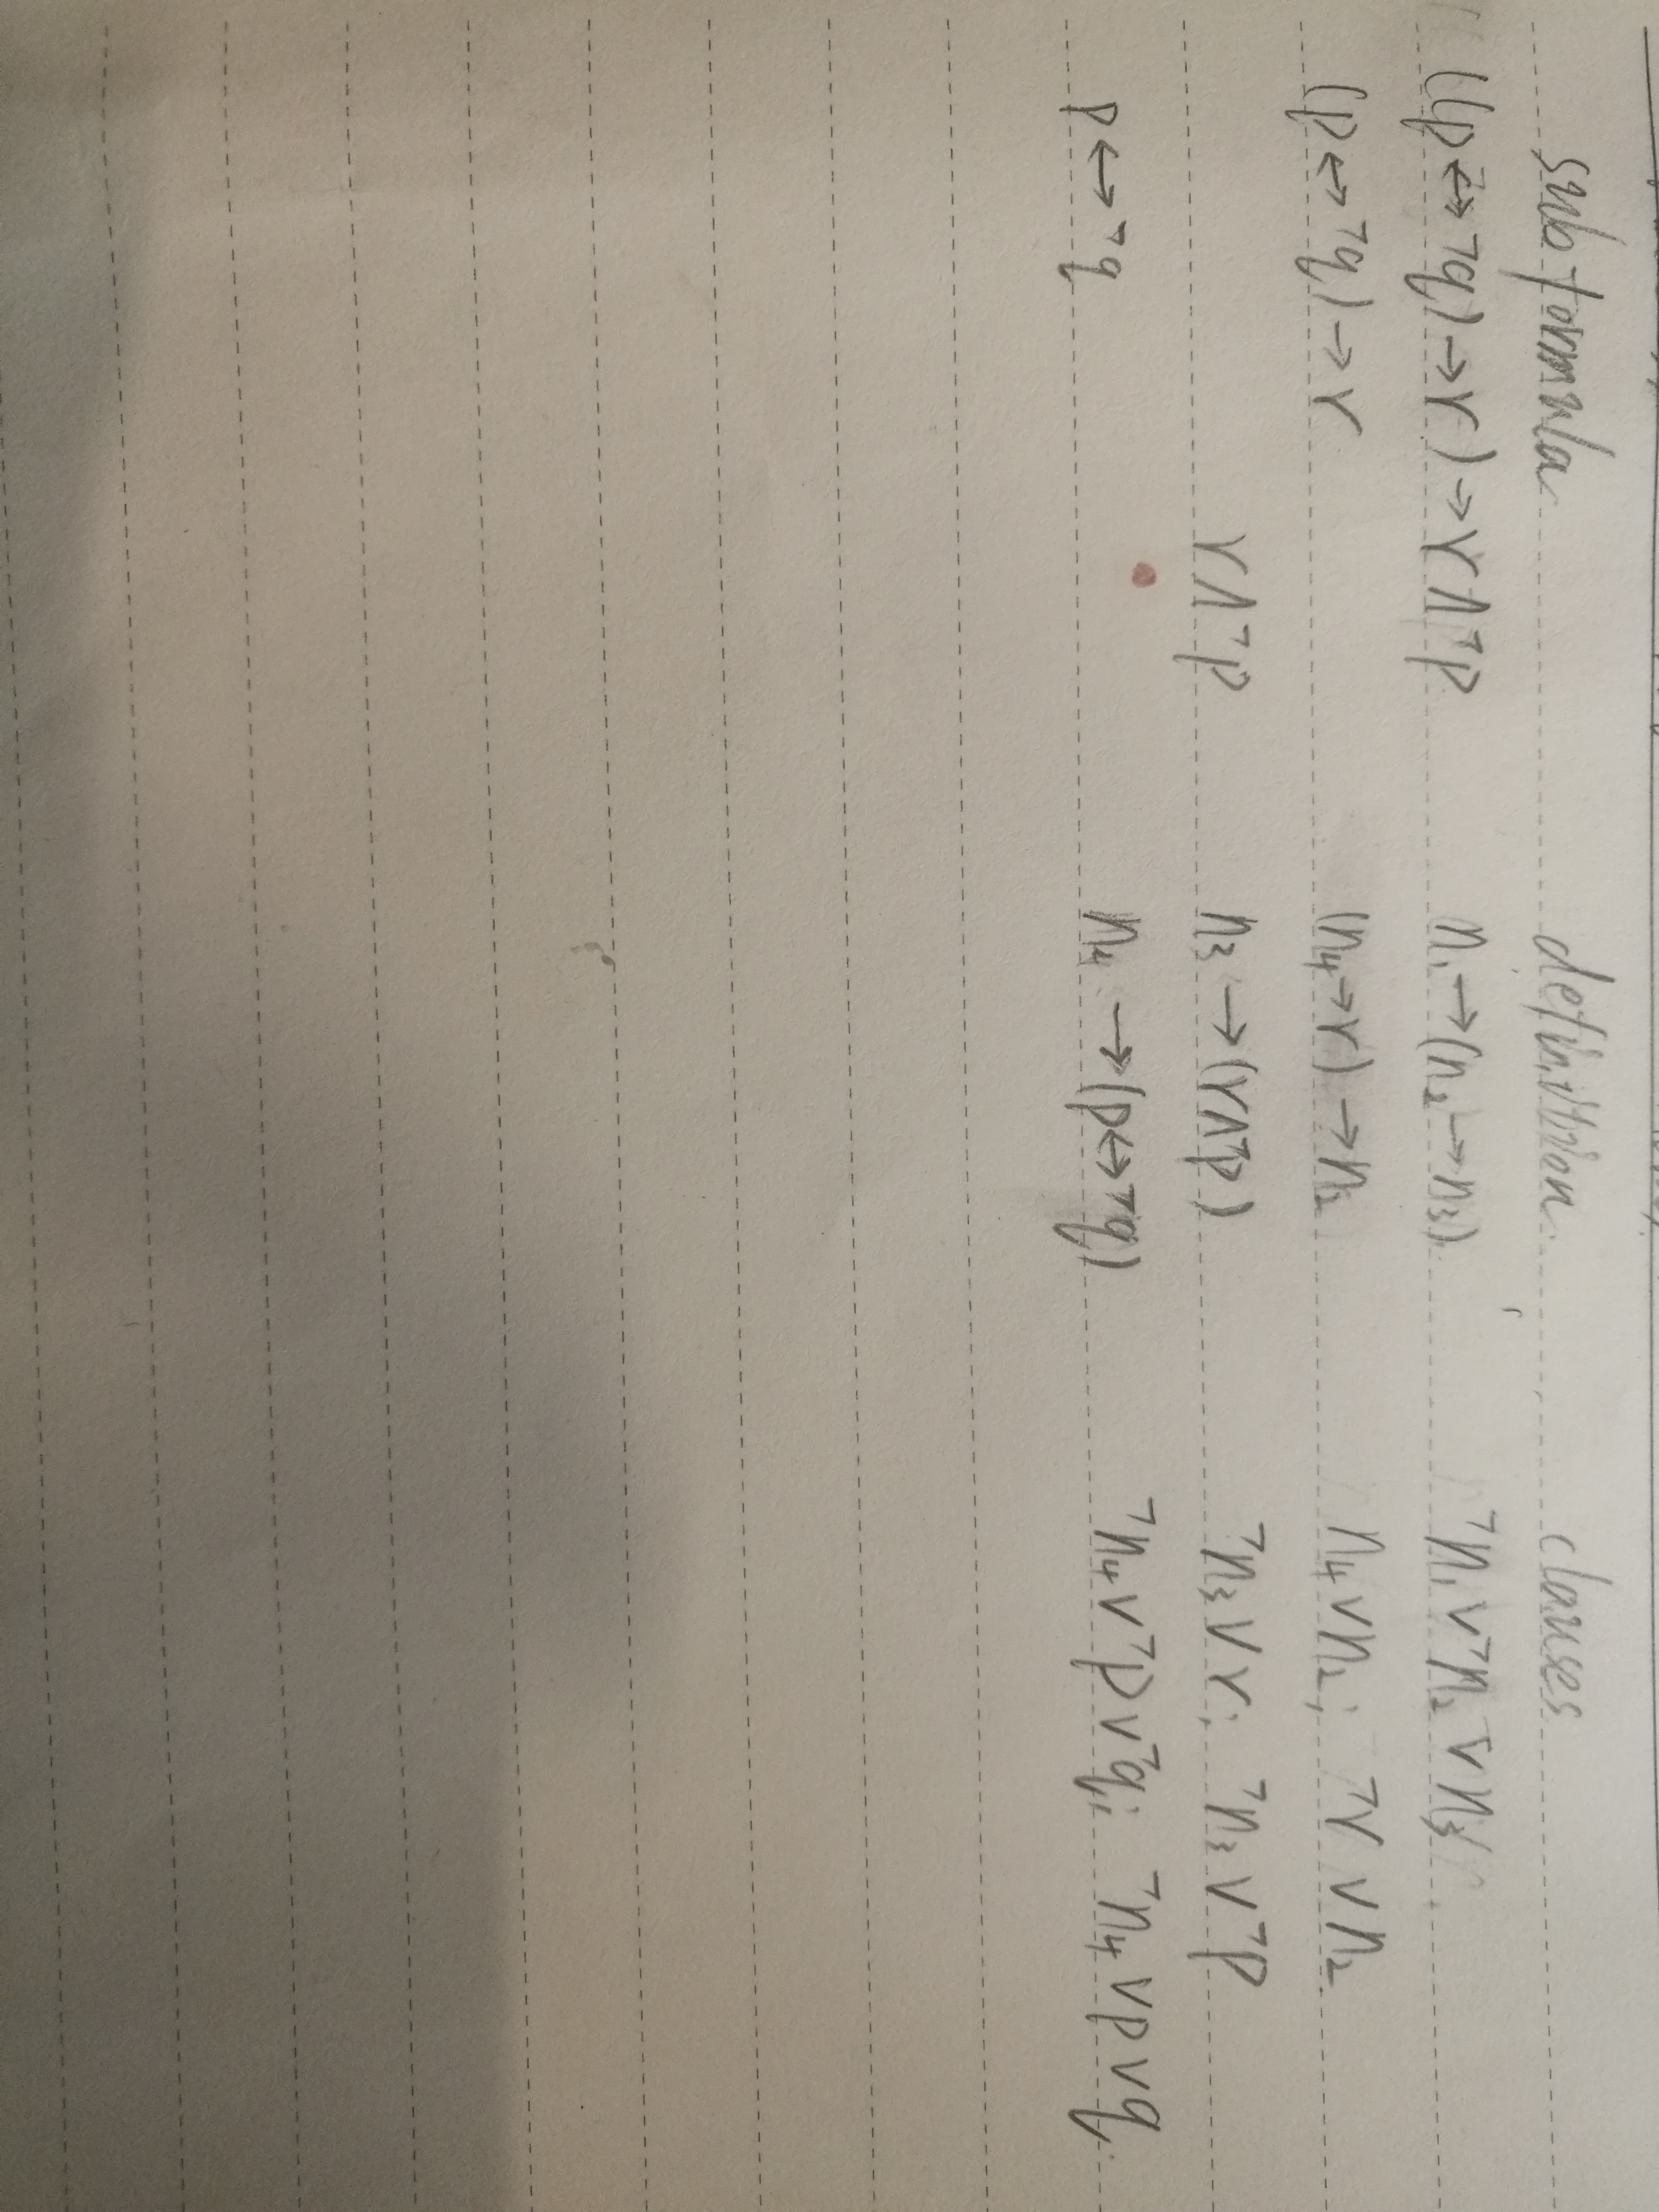 subformula definition. clauses
((p↔¬q)→r)→r∧¬p n₁→(n₂→n₃). ¬n₁∨¬n₂∨n₃
(p↔¬q)→r (n₄→r)→n₂ n₄∨n₂; ¬r∨n₂.
r∧¬p n₃→(r∧¬p) ¬n₃∨r; ¬n₃∨¬p
p↔¬q n₄→(p↔¬q) ¬n₄∨¬p∨¬q; ¬n₄∨p∨q.